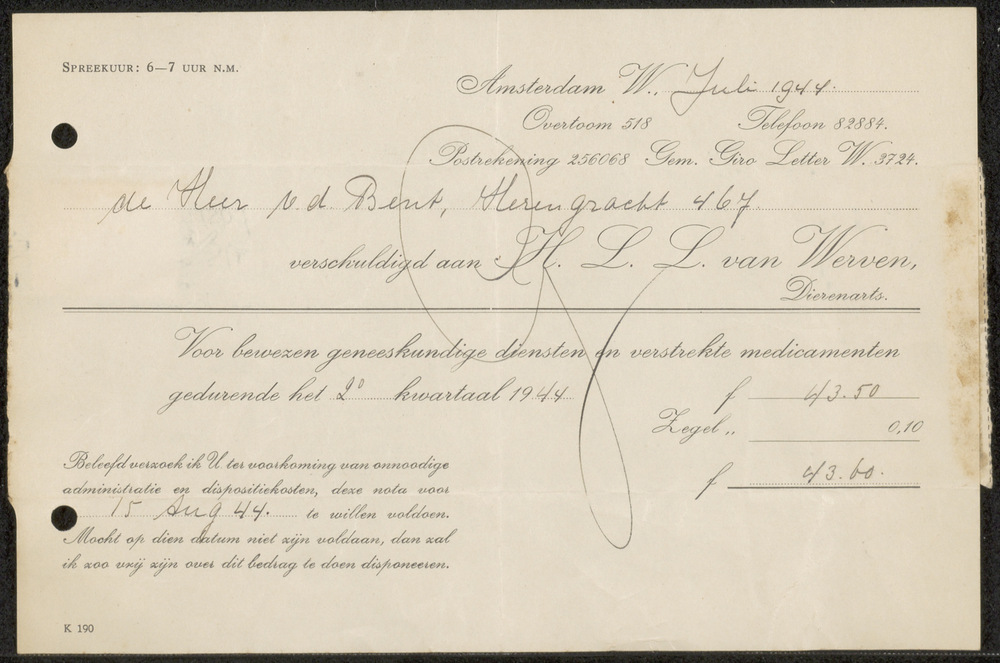 SPREEKUUR: 6—7 UUR N.M.
Amsterdam W., Juli 1944.
Overtoom 518 Telefoon 82884.
Postrekening 256068 Gem. Giro Letter W. 3724.
de Heer v. d. Bent, Herengracht 467.
verschuldigd aan H. L. L. van Werven,
Dierenarts.
Voor bewezen geneeskundige diensten en verstrekte medicamenten
gedurende het 2º kwartaal 1944 f 43.50
Zegel „ 0,10
f 43.60.
Beleefd verzoek ik U ter voorkoming van onnoodige
administratie en dispositiekosten, deze nota voor
15 Aug 44. te willen voldoen.
Mocht op dien datum niet zijn voldaan, dan zal
ik zoo vrij zijn over dit bedrag te doen disponeeren.
K 190